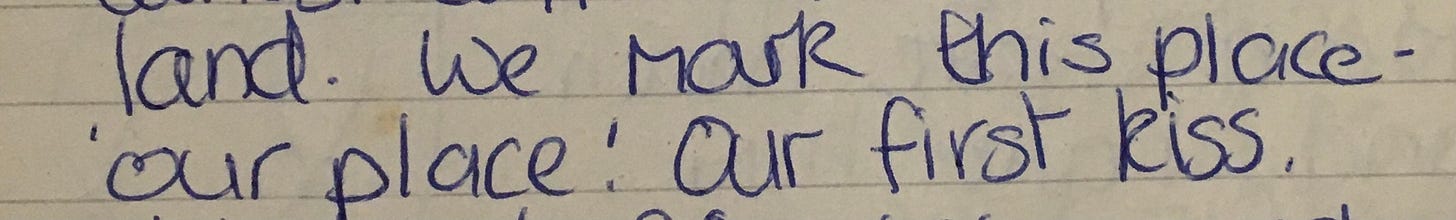 land. We mark this place -
'our place.' Our first kiss.